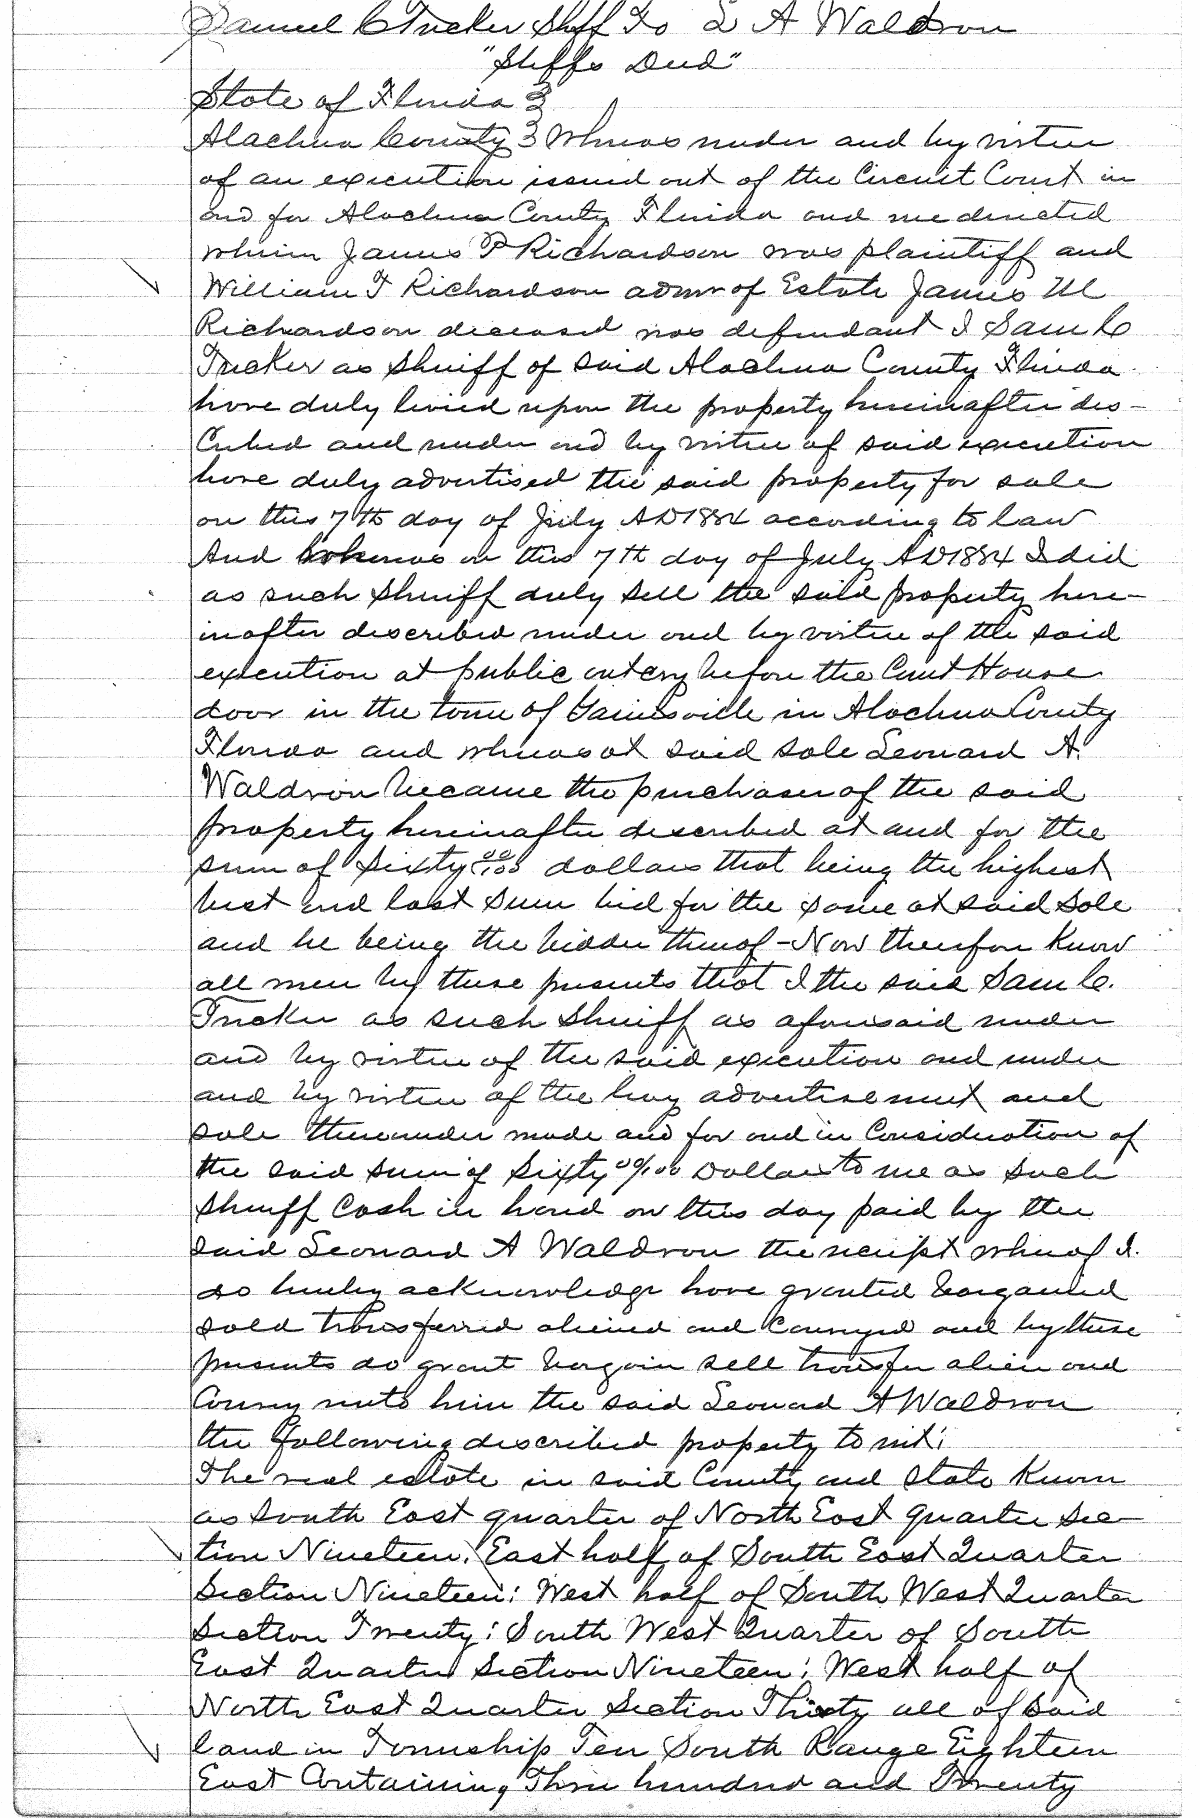 Samuel C Tucker Shff To L A Waldron
"Shffs Deed"
State of Florida }
Alachua County } Whereas under and by virtue
of an execution issued out of the Circuit Court in
and for Alachua County Florida and me directed
wherein James P Richardson was plaintiff and
William T Richardson admr of Estate James M
Richardson deceased was defendant I Sam C
Tucker as Sheriff of said Alachua County Florida
have duly levied upon the property hereinafter des-
cribed and under and by virtue of said execution
have duly advertised the said property for sale
on this 7th day of July AD 1884 according to law
And whereas on this 7th day of July AD 1884 I did
as such Sheriff duly sell the said property here-
inafter described under and by virtue of the said
execution at public outcry before the Court House
door in the town of Gainesville in Alachua County
Florida and whereas at said sale Leonard A.
Waldron became the purchaser of the said
property hereinafter described at and for the
sum of Sixty 00/100 dollars that being the highest
best and last sum bid for the same at said sale
and he being the bidder thereof - Now therefore Know
all men by these presents that I the said Sam C.
Tucker as such Sheriff as aforesaid under
and by virtue of the said execution and under
and by virtue of the levy advertisement and
sale thereunder made and for and in Consideration of
the said sum of Sixty 00/100 Dollars to me as such
Sheriff Cash in hand on this day paid by the
said Leonard A Waldron the receipt whereof I.
do hereby acknowledge have granted bargained
sold transferred aliened and Conveyed and by these
presents do grant bargain sell transfer alien and
Convey unto him the said Leonard A Waldron
the following described property to wit:
The real estate in said County and State Known
as South East quarter of North East quarter Sec-
tion Nineteen: East half of South East Quarter
Section Nineteen: West half of South West Quarter
Section Twenty: South West Quarter of South
East Quarter Section Nineteen: West half of
North East Quarter Section Thirty all of said
land in Township Ten South Range Eighteen
East Containing Three hundred and Twenty